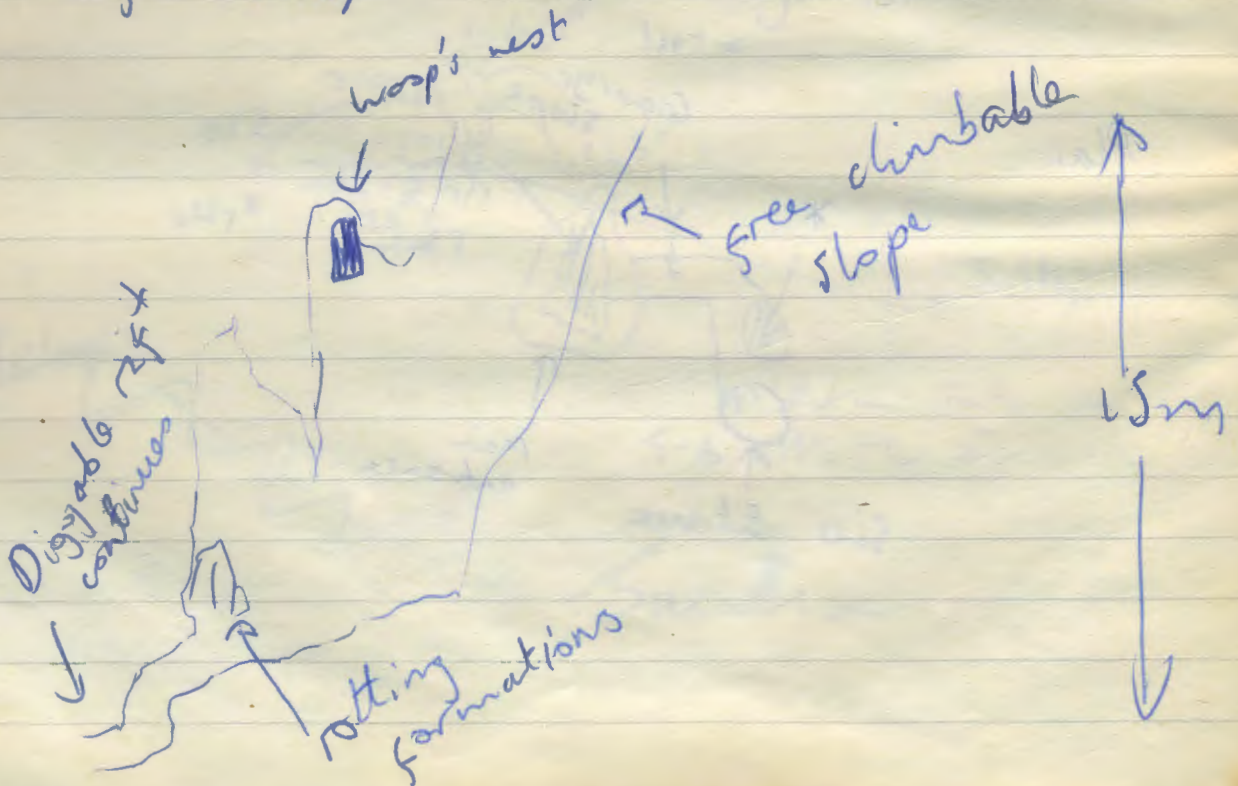 wasp's nest
free climbable
slope
15m
Diggable
continues
rotting
formations